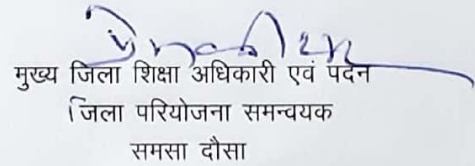 मुख्य जिला शिक्षा अधिकारी एवं पदेन
जिला परियोजना समन्वयक
समसा दौसा